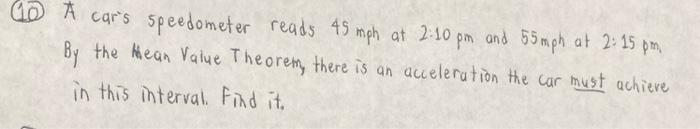 10 A car's speedometer reads 45 mph at 2:10 pm and 55mph at 2:15 pm.
By the Mean Value Theorem, there is an acceleration the car must achieve
in this interval. Find it.